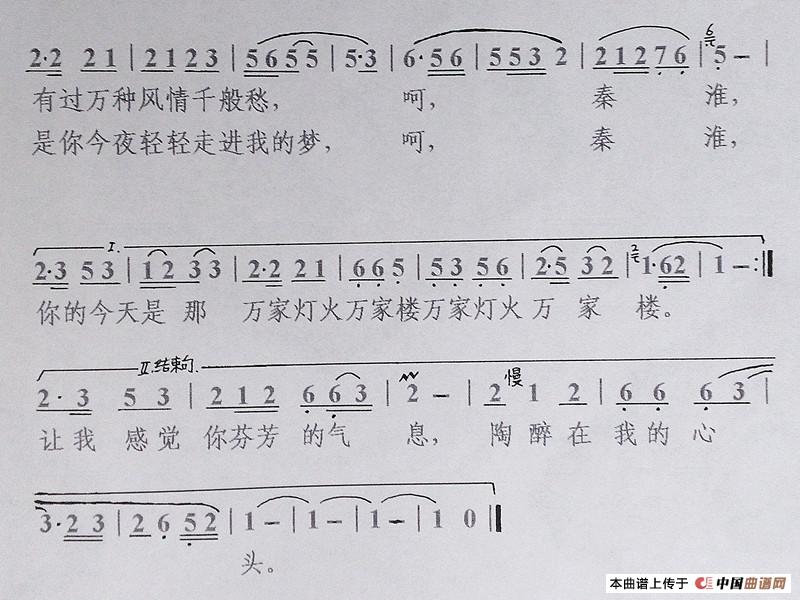 2·2 2 1 | 2 1 2 3 | 5 6 5 5 | 5·3 | 6·5 6 | 5 5 3 2 | 2 1 2 7 6 | 6 5 – |
有过万种风情千般愁， 呵， 秦 淮，
是你今夜轻轻走进我的梦， 呵， 秦 淮，
I.
2·3 5 3 | 1 2 3 3 | 2·2 2 1 | 6 6 5 | 5 3 5 6 | 2·5 3 2 | 2 1·6 2 | 1 – :‖
你的今天是 那 万家灯火万家楼万家灯火 万 家 楼。
II.结束句.
2·3 5 3 | 2 1 2 6 6 3 | 2 – | 2 慢 1 2 | 6 6 6 3 |
让我 感觉 你芬芳 的气 息， 陶 醉 在 我 的 心
3·2 3 | 2 6 5 2 | 1 – | 1 – | 1 – | 1 0 ‖
头。
本曲谱上传于 中国曲谱网